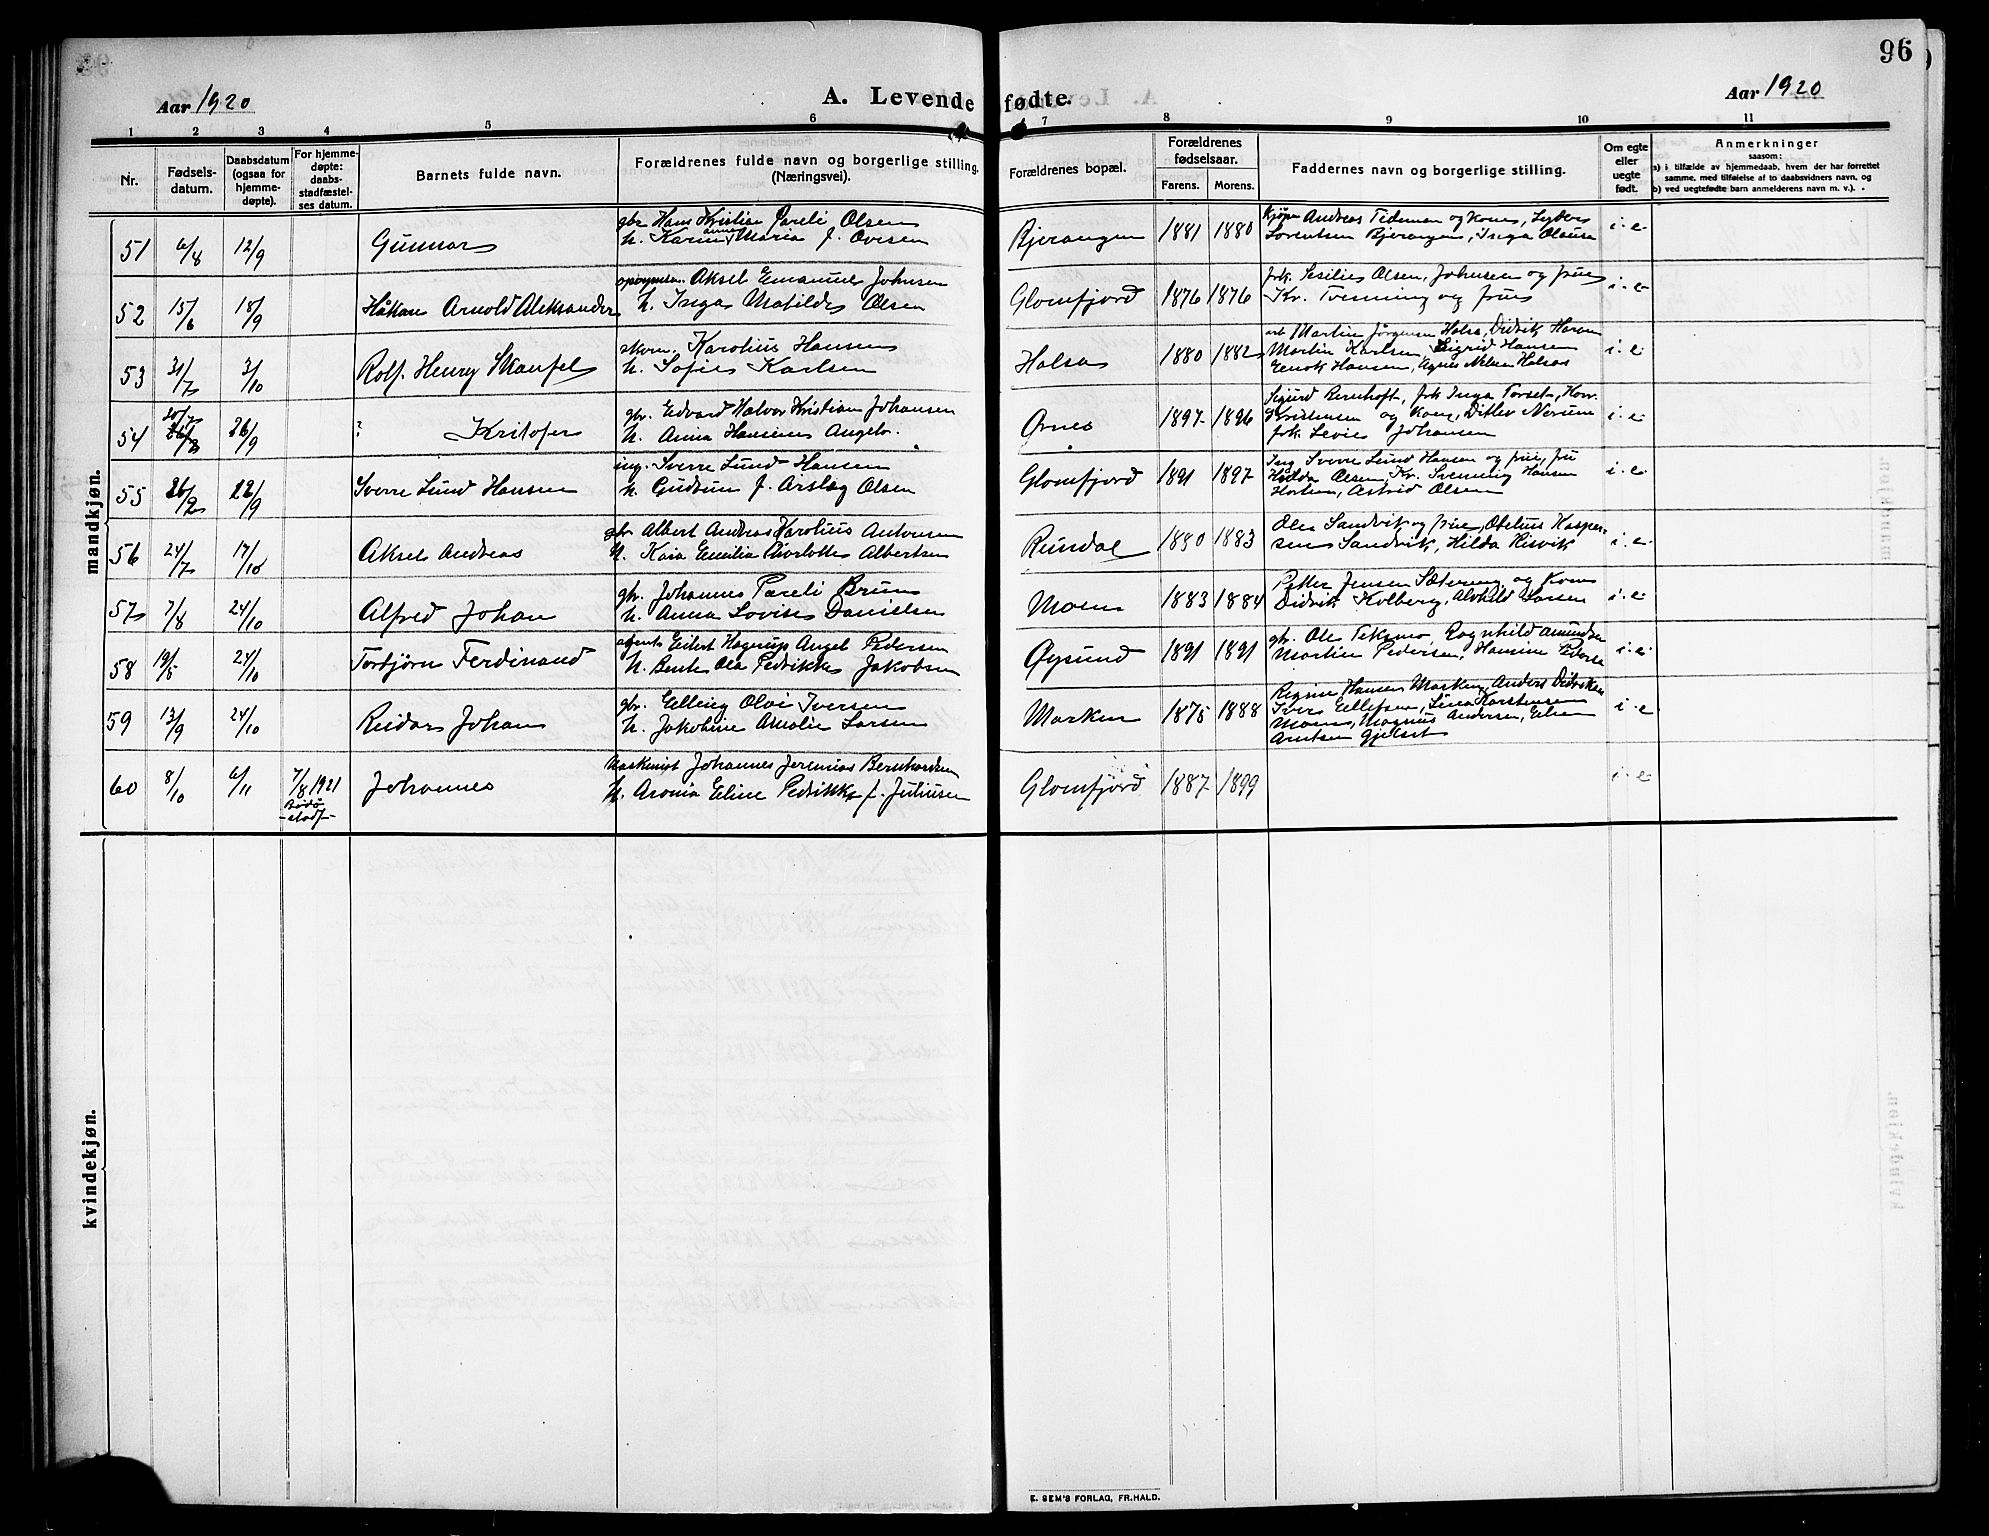 96
Aar 1920
A. Levende fødte.
Aar 1920
1 2 3 4 5 6 7 8 9 10 11
Nr.
Fødsels-
datum.
Daabsdatum
(ogsaa for
hjemme-
døpte).
For hjemme-
døpte:
daabs-
stadfæstel-
ses datum.
Barnets fulde navn.
Forældrenes fulde navn og borgerlige stilling.
(Næringsvei).
Forældrenes bopæl.
Forældrenes
fødselsaar.
Farens. Morens.
Faddernes navn og borgerlige stilling.
Om egte
eller
uegte
født.
Anmerkninger
saasom:
a) i tilfælde av hjemmedaab, hvem der har forrettet
samme, med tilføielse af to daabsvidners navn, og
b) ved uegtefødte barn anmelderens navn m. v.).
mandkjøn.
51 6/8 12/9 Gunnar
gbr Hans Kristian Pareli Olsen
h. Karen Anna Maria f. Ovesen
Bjerangen 1881 1880
Andreas Tideman og kone,
Lorentsen Bjerangen, Inga Olausen
i. e.
52 15/6 18/9 Håkon Arnold Aleksander
Aksel Emanuel Johnsen
h. Inga Matilde Olsen
Glomfjord 1876 1876
frk. Sesilie Olsen, Johnsen og frue
Kr. Svenning og frue
i. e.
53 31/7 3/10 Rolf Henry Skaufel
Karolius Hansen
h. Sofie Karlsen
Halsa 1880 1882
arb Martin Jørgensen Halsa, Didrik Hansen
Martin Karlsen, Sigrid Hansen
Enok Hansen, Agnes Nilsen Halsa
i. e.
54 20/7 26/9 ? Kristofer
gbr. Edvard Halvor Kristian Johansen
h. Anna Hansine Angelo.
Ørnes 1897 1896
Sigurd Bernhoft, frk Inga Torset,
Kristensen og kone, Ditlev Nerum
frk. Levie Johansen
i. e.
55 26/2 22/9 Sverre Lund Hansen
ing. Sverre Lund Hansen
h. Gudrun f. Aslag Olsen
Glomfjord 1891 1897
Ing Sverre Lund Hansen og frue, fru
Hedda Olsen, Kr. Svenning Hansen
Horten, Astrid Olsen
i. e.
56 24/7 17/10 Aksel Andreas
gbr Albert Andreas Karolius Antonsen
h. Kaia Emilia Charlotte Albertsen
Reindal 1880 1883
Ole Sandvik og frue, Otelius Kasper-
sen Sandvik, Hilda Risvik
i. e.
57 7/8 24/10 Alfred Johan
gbr. Johannes Pareli Bruun
h. Anna Lovise Danielsen
Moen 1883 1884
Petter Jensen Sætering og kone
Didrik Kolberg, Alvhild Larsen
i. e.
58 19/5 24/10 Torbjørn Ferdinand
agent Eilert Hagerup Angel Pedersen
h. Bente Ola Pedrikke Jakobsen
Øysund 1891 1891
gbr. Ole Teksmo, Ragnhild Amundsen
Martin Pedersen, Hansine Pedersen
i. e.
59 13/9 24/10 Reidar Johan
gbr. Elling Olai Iversen
h. Jakobine Amalie Larsen
Marken 1875 1888
Regine Hansen Marken, Anders Didriksen
Iver Ellefsen, Lina Karstensen
Moen, Magnus Andersen, Eline
Arntsen Gjelset
i e
60 8/10 6/11 7/8 1921
Bodø
-stad-
Johannes
Maskinist Johannes Jeremias Bernhardsen
h. Aronia Eline Pedrikke f. Juliussen
Glomfjord 1887 1899
i. e.
kvindekjøn.
E. SEM'S FORLAG, FR.HALD.